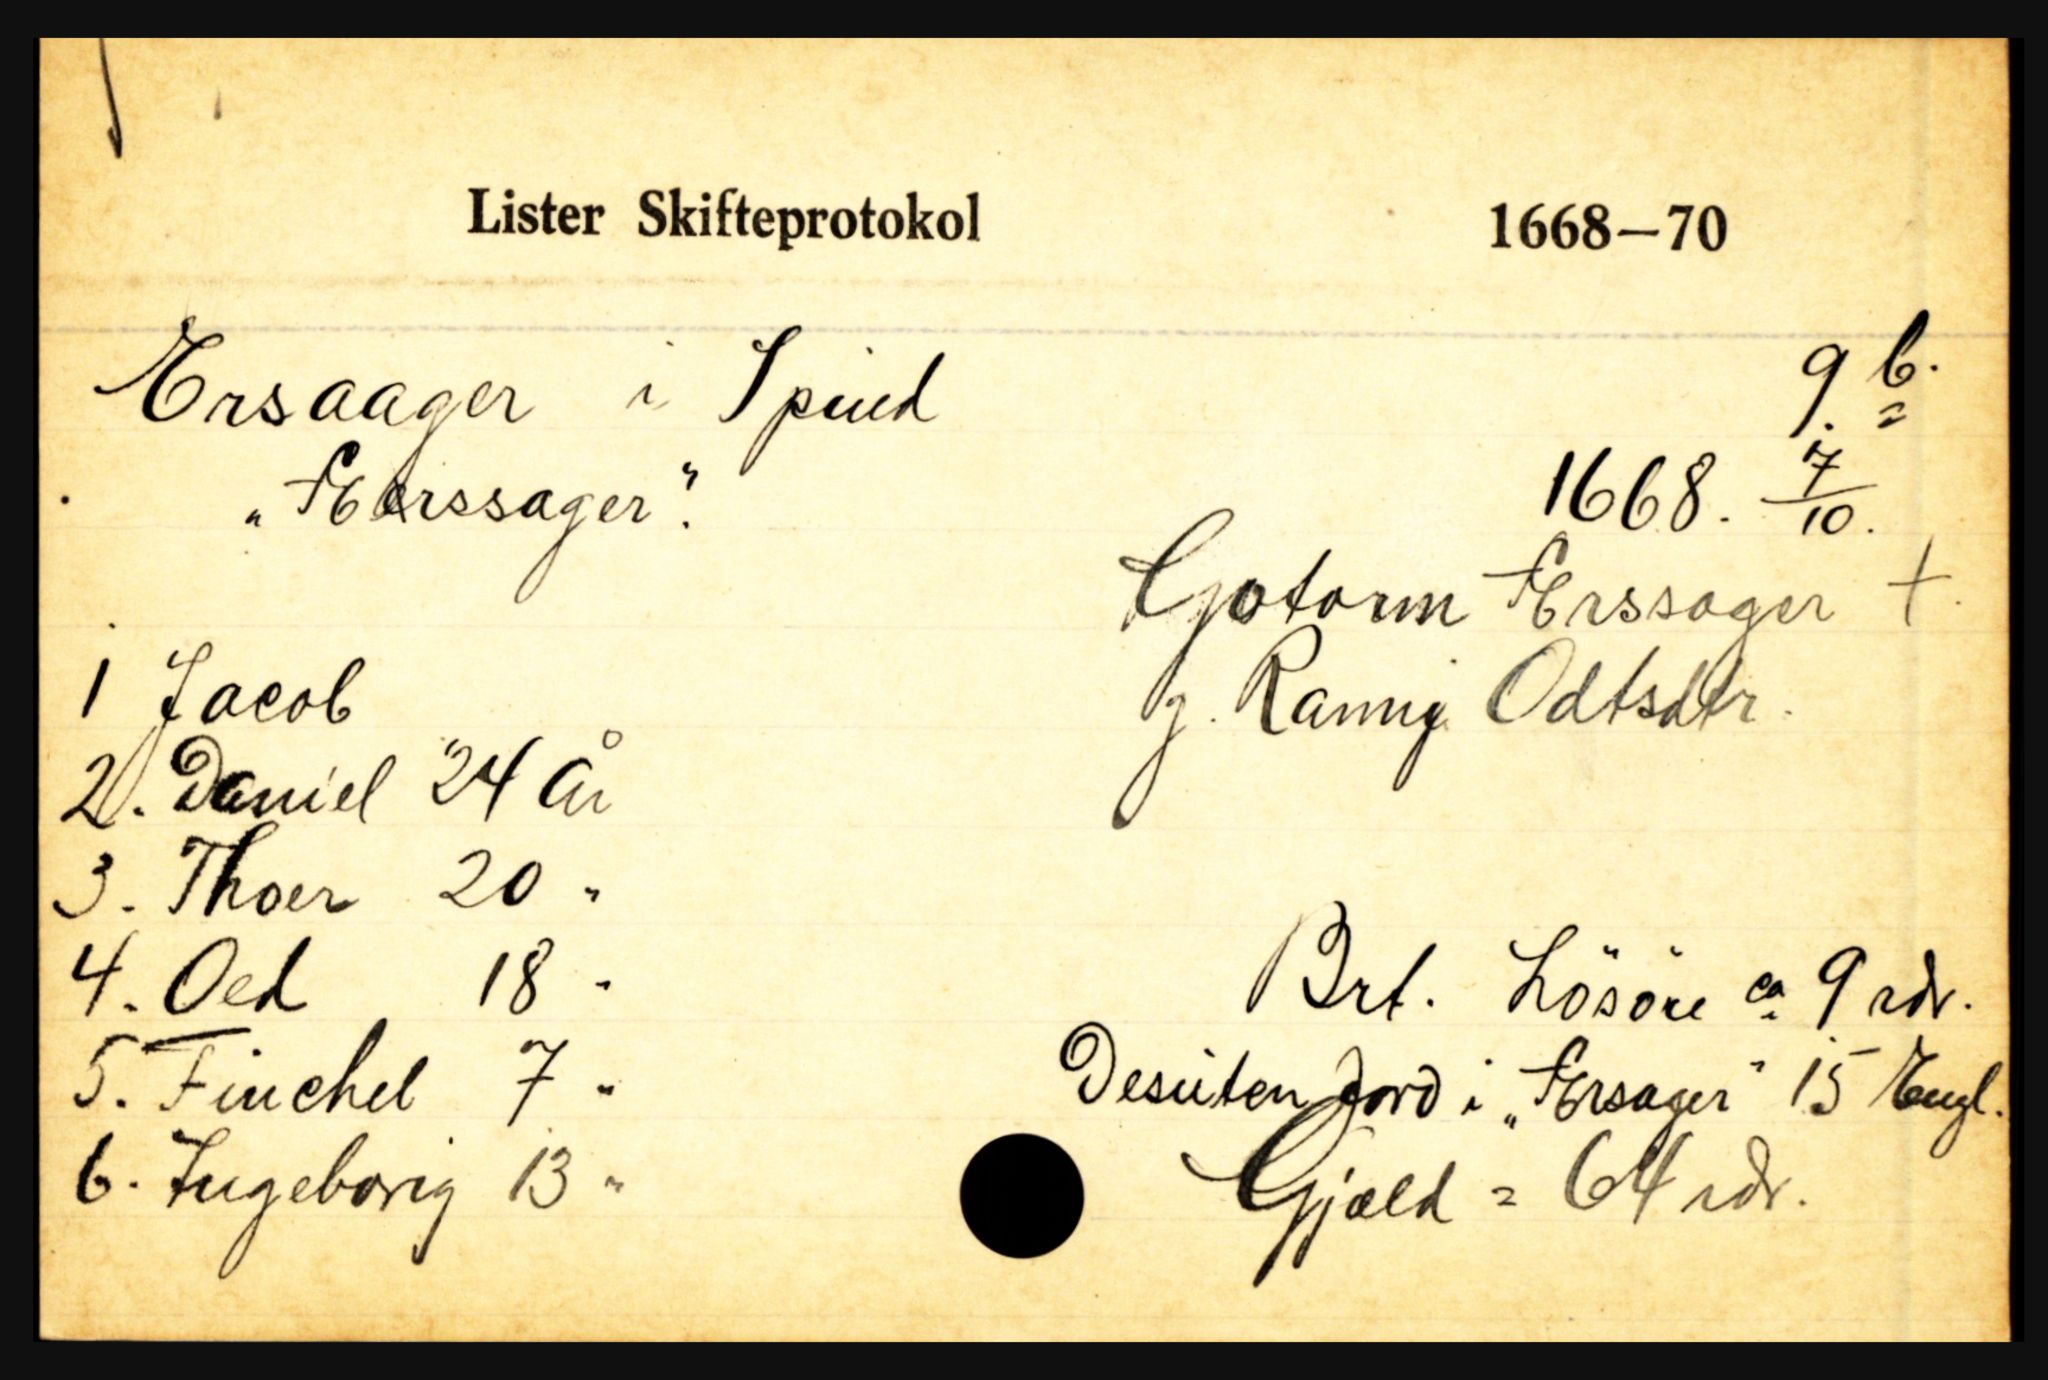 Lister Skifteprotokol 1668—70
Ersaager i Spind 9 b.
"Ærssager". 1668. 7/10.
Gotorm Ærssager +.
1 Jacob g. Rannig Odtsdtr.
2. Daniel 24 år
3. Thoer 20 "
4. Oed 18 " Brt. Lösöre ca 9 rdr.
5. Finchel 7 " Desuten Jord i "Ærsager" 15 Engl.
6. Ingeborig 13 " Gjæld = 64 rdr.